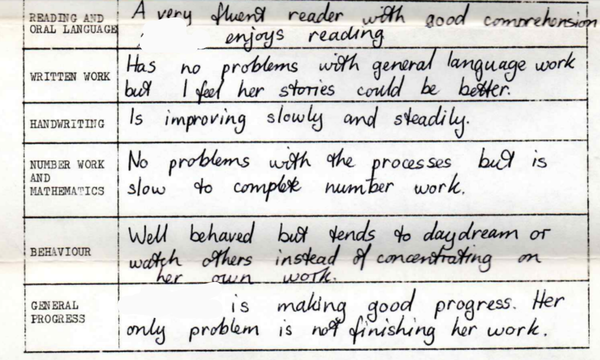 READING AND
ORAL LANGUAGE
A very fluent reader with good comprehension
enjoys reading
WRITTEN WORK
Has no problems with general language work
but I feel her stories could be better.
HANDWRITING
Is improving slowly and steadily.
NUMBER WORK
AND
MATHEMATICS
No problems with the processes but is
slow to complete number work.
BEHAVIOUR
Well behaved but tends to daydream or
watch others instead of concentrating on
her own work.
GENERAL
PROGRESS
is making good progress. Her
only problem is not finishing her work.